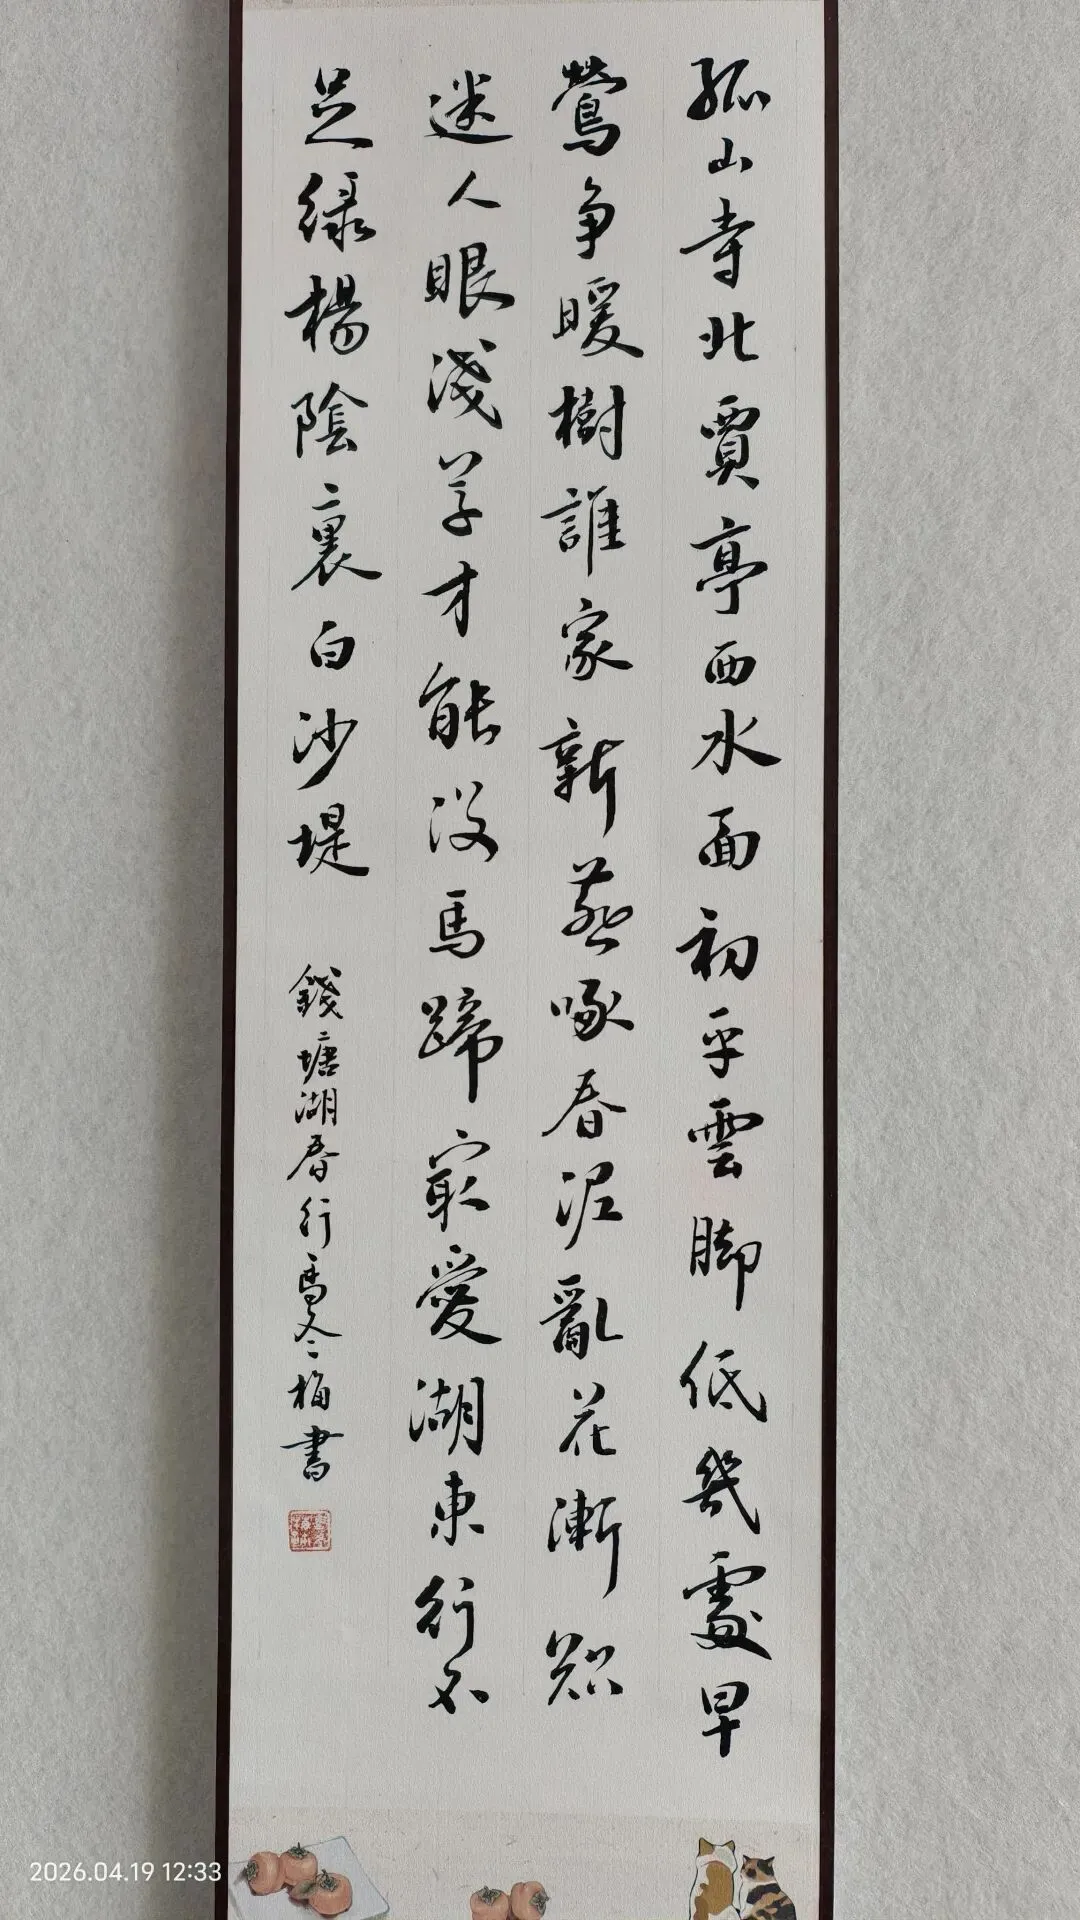 孤山寺北賈亭西水面初平雲脚低幾處早
鶯争暖樹誰家新燕啄春泥亂花漸欲
迷人眼淺草才能没馬蹄最愛湖東行不
足緑楊陰裏白沙堤
錢塘湖春行馮冬梅書
2026.04.19 12:33